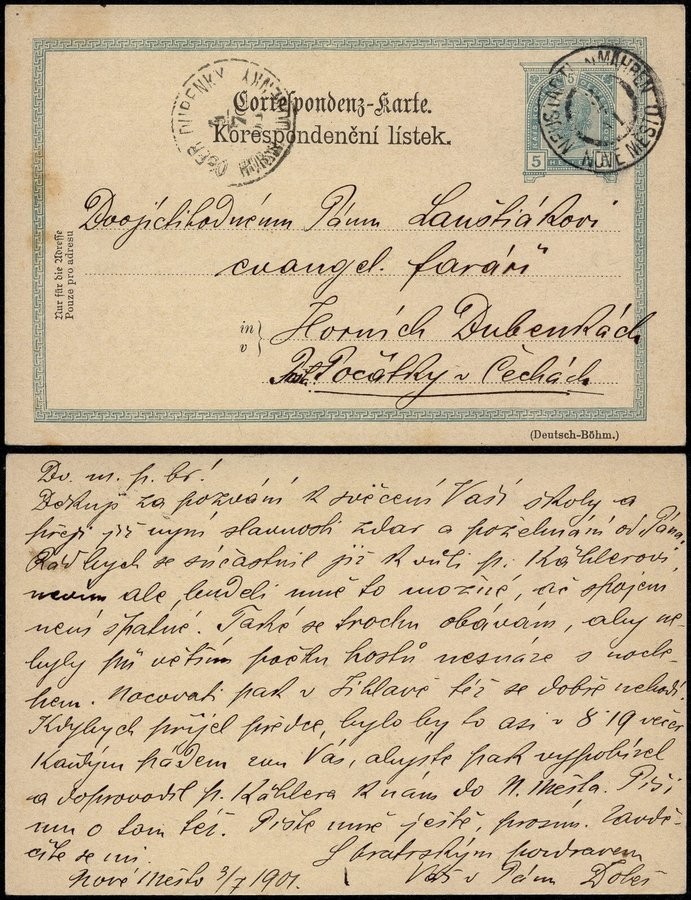 Correspondenz-Karte.
Korespondenční lístek.
5
5 HELLER
NEUSTADTL MÄHREN
NOVÉ MĚSTO
OBER DUBENKY
Nur für die Adresse
Pouze pro adresu
Dvojctihodnému Pánu Lauštiákovi
evangel. faráři
in
v
Horních Dubenkách
Počátky v Čechách
(Deutsch-Böhm.)
Dv. m. p. br.!
Děkuji za pozvání k svěcení Vaší školy a
přeji již nyní slavnosti zdar a požehnání od Pána.
Rád bych se súčastnil již k vůli p. Kählerovi,
nevím ale, budeli mně to možné, ač spojení
není špatné. Také se trochu obávám, aby ne-
byly při větším počtu hostů nesnáze s nocle-
hem. Nocovati pak v Jihlavě též se dobře nehodí.
Kdybych přijel předce, bylo by to asi v 8 19 večer
Každým pádem zvu Vás, abyste pak vypobízel
a doprovodil p. Kählera k nám do N. Města. Píši
mu o tom též. Pište mně ještě, prosím. Zavdě-
číte se mi. S bratrským pozdravem
Nové Město 3/7 1901. Váš v Pánu Dobeš